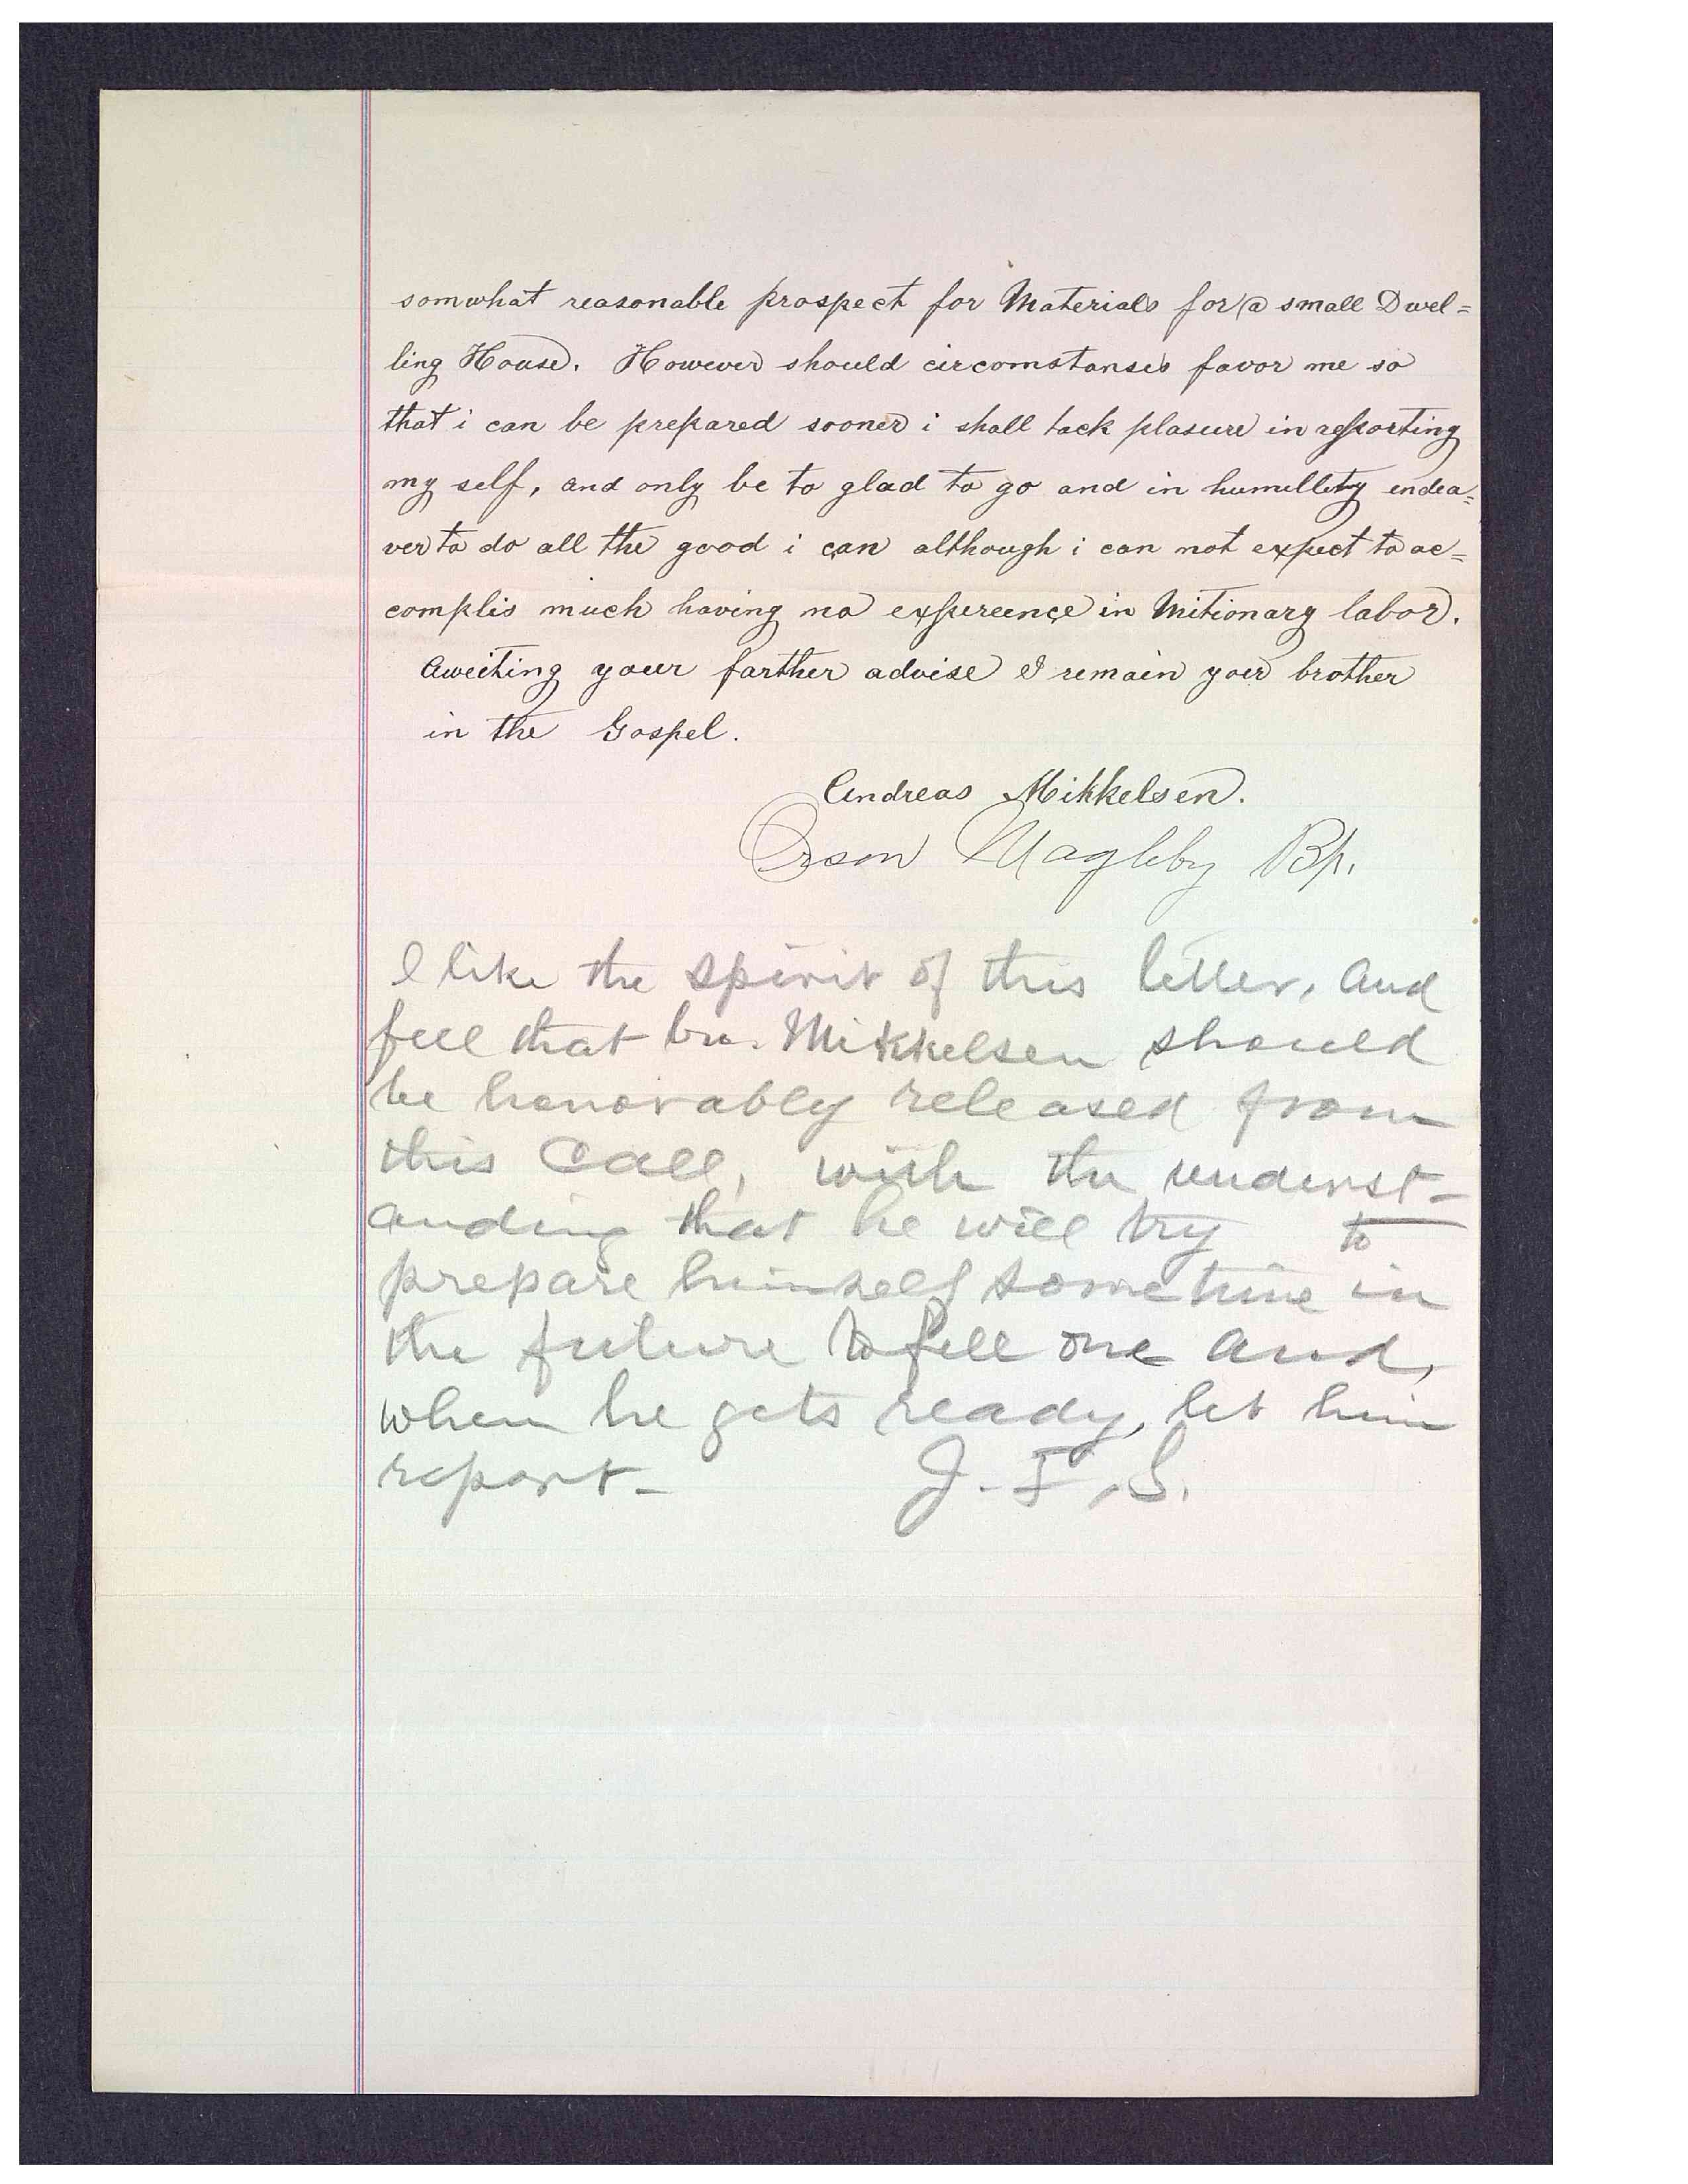 somwhat reasonable prospect for Materials for a small Dwel=
ling House. However should circomstanses favor me so
that i can be prepared sooner i shall tack plasure in reporting
my self, and only be to glad to go and in humillety endea=
ver to do all the good i can although i can not expect to ac=
complis much having no expereence in Mitionary labor.
Aweiting your farther advise I remain your brother
in the Gospel.
Andreas Mikkelsen.
Orson Magleby Bp.
I like the spirit of this letter, and
feel that bro. Mikkelsen should
be honorably released from
this call, with the underst-
anding that he will try to
prepare himself sometime in
the future to fill one and,
when he gets ready, let him
report- J. F. S.